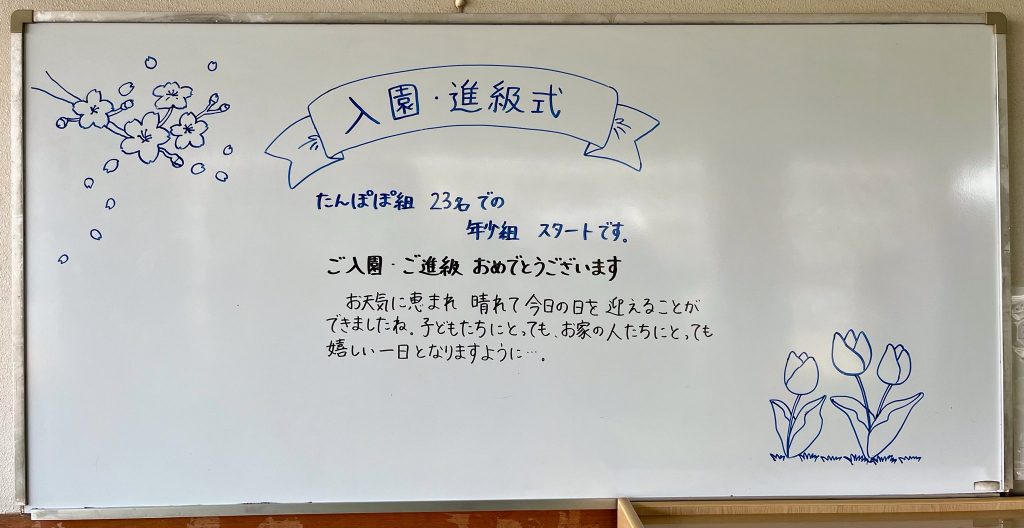 入園・進級式
たんぽぽ組 23名での
年少組 スタートです。
ご入園・ご進級 おめでとうございます
お天気に恵まれ 晴れて今日の日を迎えることが
できましたね。子どもたちにとっても、お家の人たちにとっても
嬉しい一日となりますように…。